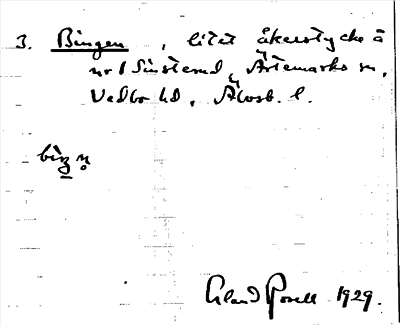 3. Bingen, litet åkerstycke å
nr 1 Sinsterud, Ärtemarks sn,
Vedbo hd, Älvsb. l.
biŋn̥
Erland Rosell 1929.